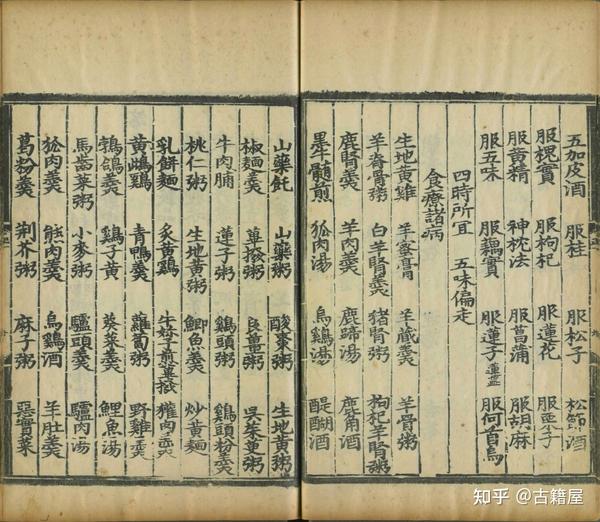 五加皮酒 服桂 服松子 松節酒
服槐實 服枸杞 服蓮花 服栗子
服黄精 神枕法 服菖蒲 服胡麻
服五味 服藕實 服蓮子蓮蘂 服何首烏
四時所宜 五味偏走
食療諸病
生地黄雞 羊蜜膏 羊藏羹 羊骨粥
羊脊骨粥 白羊腎羹 猪腎粥 枸杞羊腎粥
鹿腎羹 羊肉羹 鹿蹄湯 鹿角酒
黑牛髓煎 狐肉湯 烏鷄湯 醍醐酒
山藥飥 山藥粥 酸棗粥 生地黄粥
椒麵羹 蓽撥粥 良薑粥 吳茱萸粥
牛肉脯 蓮子粥 鷄頭粥 鷄頭粉羹
桃仁粥 生地黄粥 鯽魚羹 炒黄麵
乳餅麵 炙黄鷄 牛妳子煎蓽撥 貛肉羹
黄雌鷄 青鴨羹 蘿蔔粥 野鷄羹
鵓鴿羹 鷄子黄 葵菜羹 鯉魚湯
馬齒菜粥 小麥粥 驢頭羹 驢肉湯
狐肉羹 熊肉羹 烏鷄酒 羊肚羹
葛粉羹 荆芥粥 麻子粥 惡實菜
知乎 @古籍屋